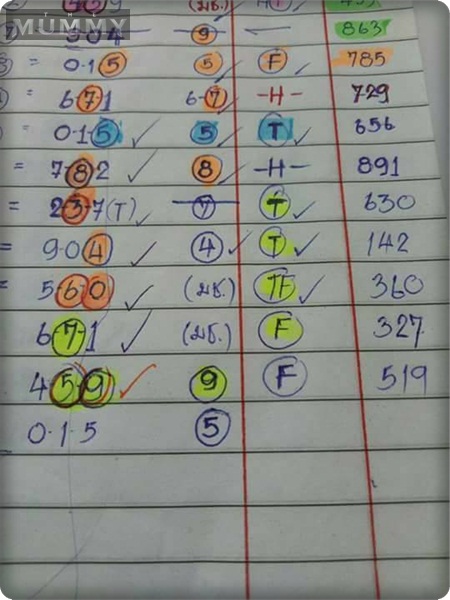 MUMMY
9 863
= 0·1·5 5 F 785
= 6·7·1 6-7 -H- 729
= 0·1·5 5 T 656
= 7·8·2 8 -H- 891
= 2·3·7(T) 7 T 630
= 9·0·4 4 T 142
= 5·6·0 (มช.) TF 360
6·7·1 (มช.) F 327
4·5·9 9 F 519
0·1·5 5